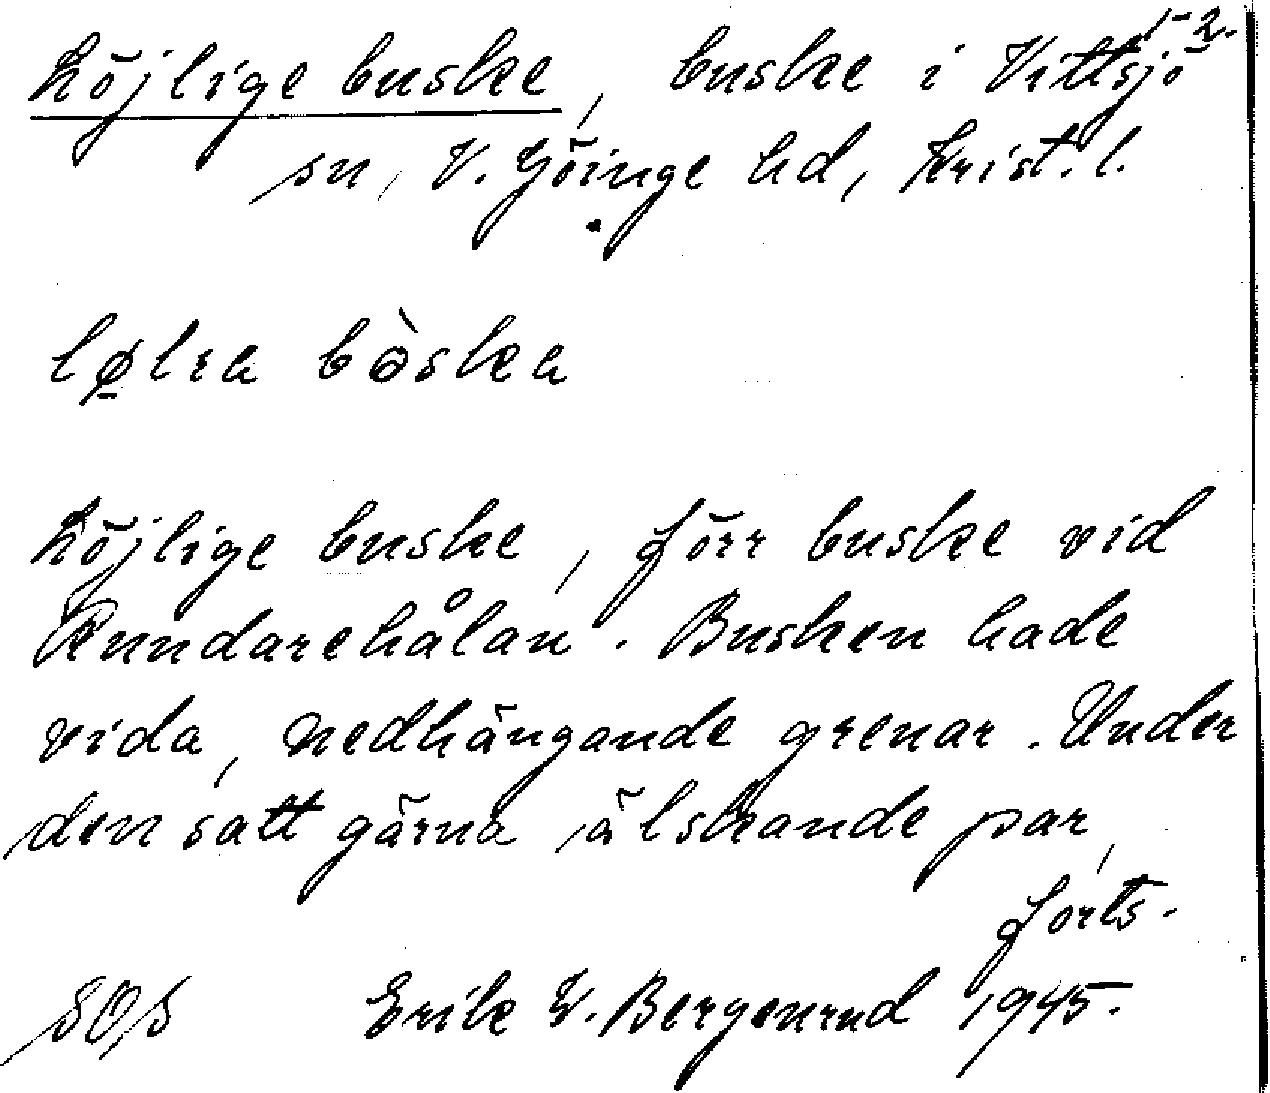 1-2.
Löjlige buske, buske i Vittsjö
sn, V. Göinge hd, Krist. l.
bɵska
Löjlige buske, förr buske vid
Rundarehålan. Busken hade
vida, nedhängande grenar. Under
den satt gärna älskande par,
forts.
Erik W. Bergenrud 1945.